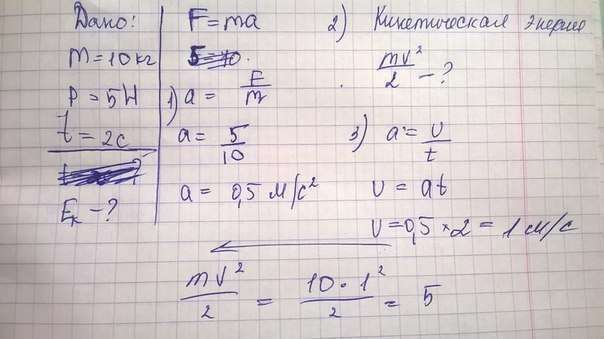 Дано:
m = 10 кг
P = 5 Н
t = 2с
Eк - ?
F = ma
1) a = F/m
a = 5/10
a = 0,5 м/с²
2) Кинетическая Энергия
mv²/2 - ?
3) a = υ/t
υ = at
υ = 0,5 × 2 = 1 м/с
mv²/2 = 10 · 1²/2 = 5